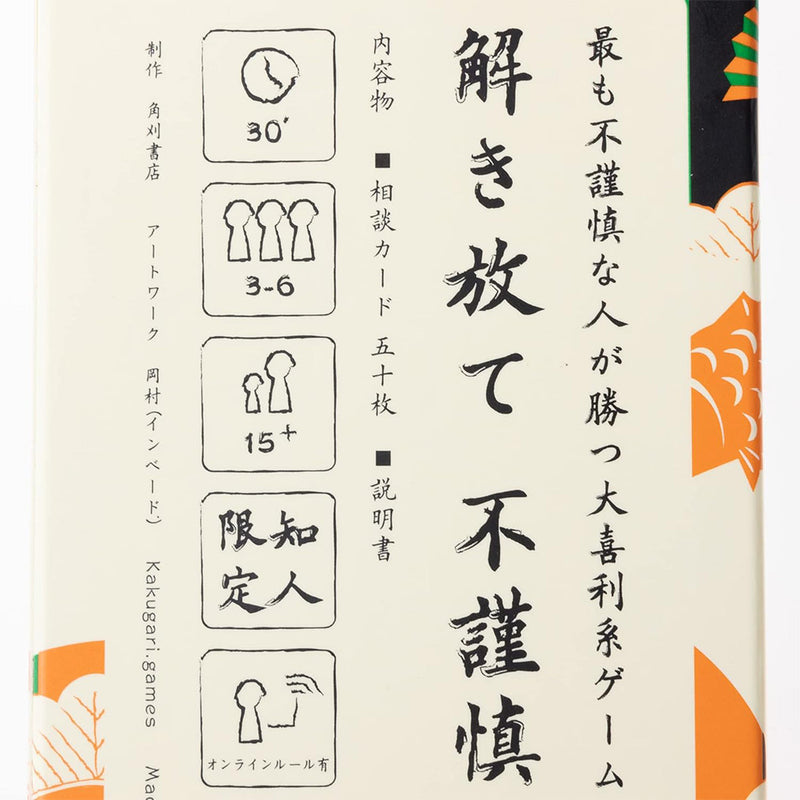 最も不謹慎な人が勝つ大喜利系ゲーム
解き放て 不謹慎
内容物 ■相談カード 五十枚 ■説明書
30'
3-6
15+
知人
限定
オンラインルール有
制作 角刈書店 アートワーク 岡村(インベード) Kakugari.games